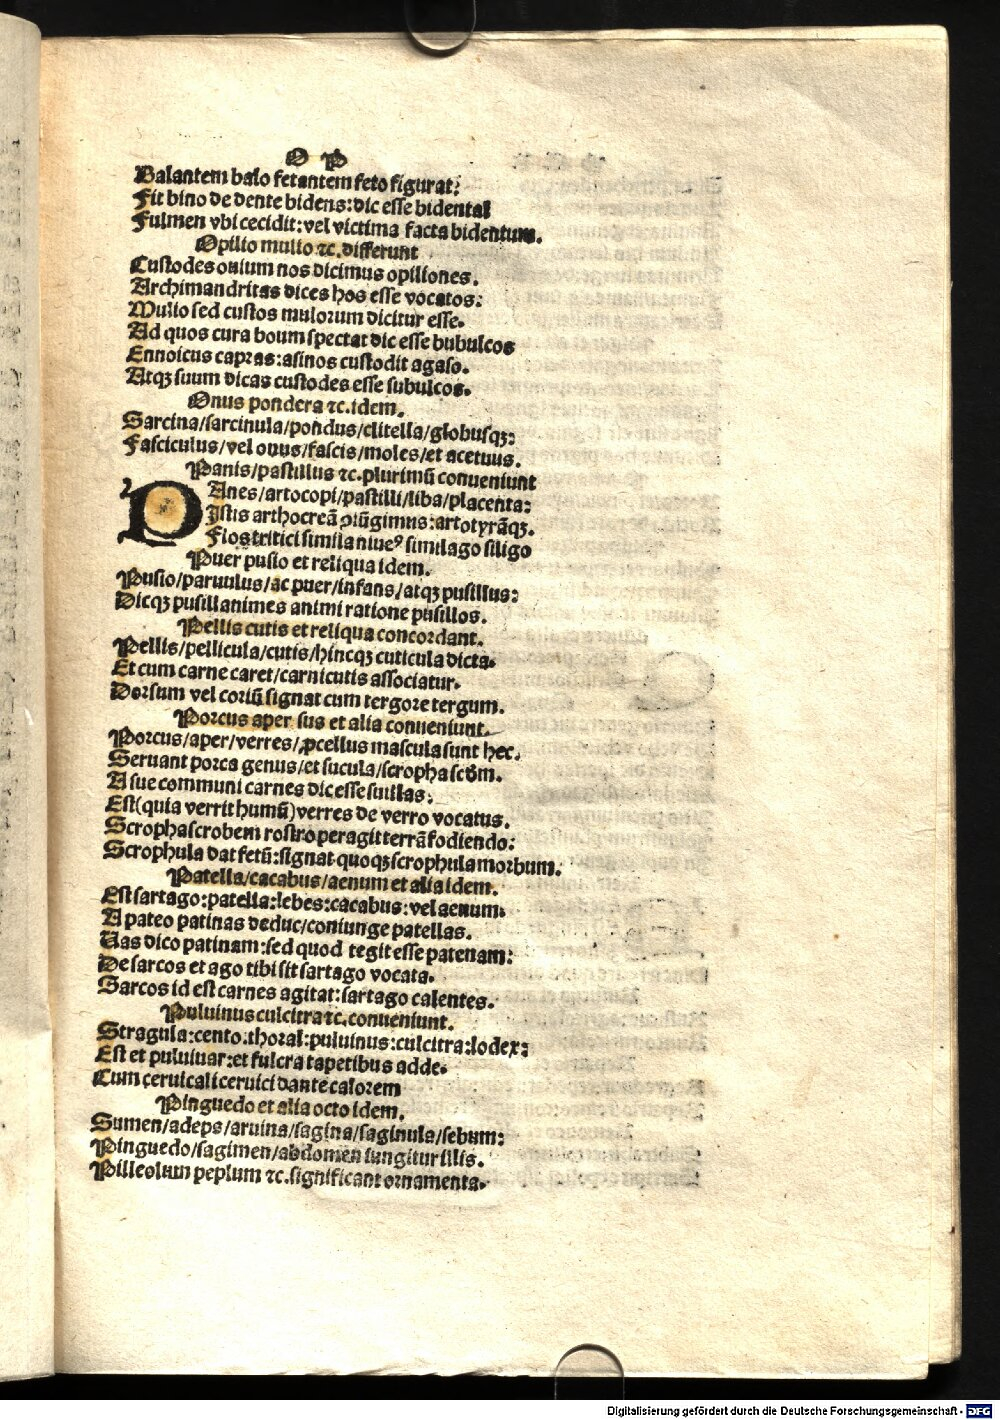 O P
Balantem balo fetantem feto figurat:
Fit bino de dente bidens: dic esse bidental
Fulmen vbi cecidit: vel victima facta bidentum.
Opilio mulio ⁊c. differunt
Custodes ouium nos dicimus opiliones.
Archimandritas dices hos esse vocatos:
Mulio sed custos mulorum dicitur esse.
Ad quos cura boum spectat dic esse bubulcos
Ennoicus capras: asinos custodit agaso.
Atqꝫ suum dicas custodes esse subulcos.
Onus pondera ⁊c. idem.
Sarcina/sarcinula/pondus/clitella/globusqꝫ:
Fasciculus/vel onus/fascis/moles/et aceruus.
Panis/pastillus ⁊c. plurimū conueniunt
PAnes/artocopi/pastilli/liba/placenta:
Istis arthocreā ꝯiūgimus: artotyrāqꝫ.
Flos tritici simila niueꝰ similago siligo
Puer pusio et reliqua idem.
Pusio/paruulus/ac puer/infans/atqꝫ pusillus:
Dicqꝫ pusillanimes animi ratione pusillos.
Pellis cutis et reliqua concordant.
Pellis/pellicula/cutis/hincqꝫ cuticula dicta.
Et cum carne caret/carnicutis associatur.
Dorsum vel coriū signat cum tergore tergum.
Porcus aper sus et alia conueniunt.
Porcus/aper/verres/ꝓcellus mascula sunt hec.
Seruant porca genus/et sucula/scropha scdm.
A sue communi carnes dic esse suillas:
Est (quia verrit humū) verres de verro vocatus.
Scropha scrobem rostro peragit terrā fodiendo:
Scrophula dat fetū: signat quoqꝫ scrophula morbum.
Patella/cacabus/aenum et alia idem.
Est sartago: patella: lebes: cacabus: vel aenum.
A pateo patinas deduc/coniunge patellas.
Uas dico patinam: sed quod tegit esse patenam:
De sarcos et ago tibi sit sartago vocata.
Sarcos id est carnes agitat: sartago calentes.
Puluinus culcitra ⁊c. conueniunt.
Stragula: cento: thoral: puluinus: culcitra: lodex:
Est et puluinar: et fulcra tapetibus adde.
Cum ceruicali ceruici dante calorem
Pinguedo et alia octo idem.
Sumen/adeps/aruina/sagina/saginula/sebum:
Pinguedo/sagimen/abdomen iungitur illis.
Pilleolum peplum ⁊c. significant ornamenta.
Digitalisierung gefördert durch die Deutsche Forschungsgemeinschaft - DFG